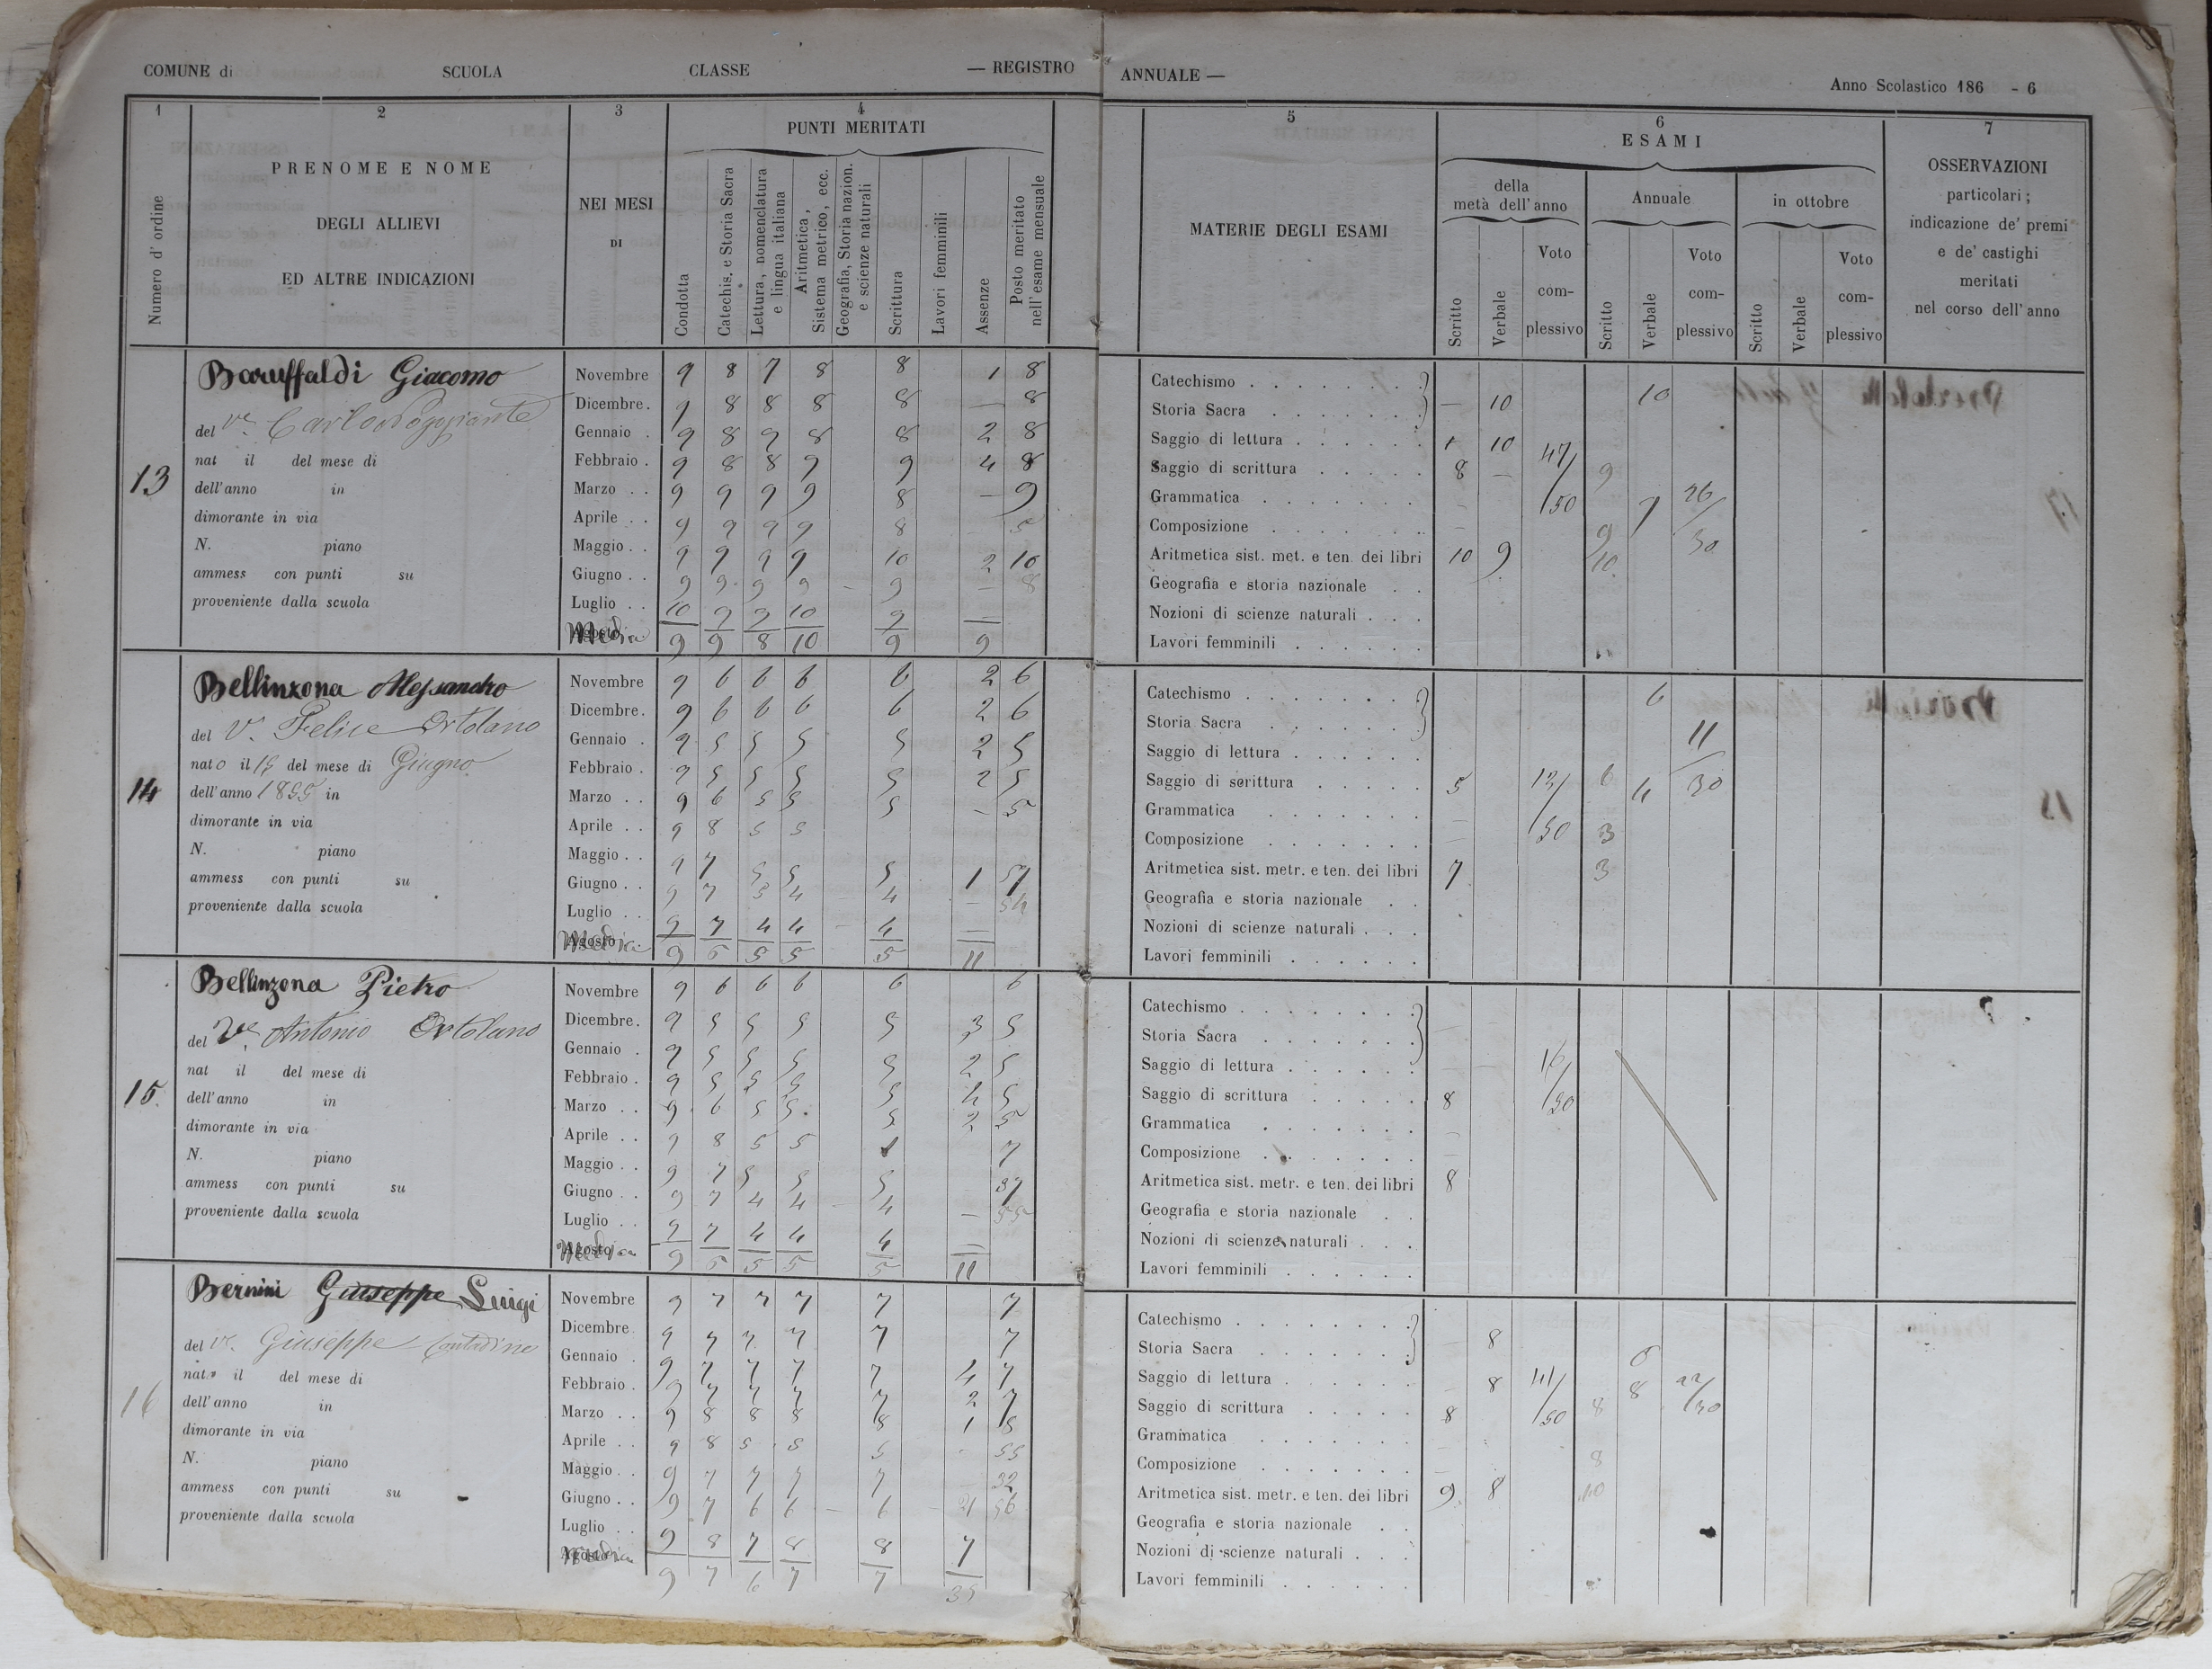 COMUNE di SCUOLA CLASSE — REGISTRO ANNUALE — Anno Scolastico 186 - 6
1 2 3 4 5 6 7
Numero d'ordine
PRENOME E NOME
DEGLI ALLIEVI
ED ALTRE INDICAZIONI
NEI MESI
DI
PUNTI MERITATI
Condotta
Catechis. e Storia Sacra
Lettura, nomenclatura
e lingua italiana
Aritmetica,
Sistema metrico, ecc.
Geografia, Storia nazion.
e scienze naturali
Scrittura
Lavori femminili
Assenze
Posto meritato
nell'esame mensuale
MATERIE DEGLI ESAMI
ESAMI
della
metà dell'anno
Scritto
Verbale
Voto
com-
plessivo
Annuale
Scritto
Verbale
Voto
com-
plessivo
in ottobre
Scritto
Verbale
Voto
com-
plessivo
OSSERVAZIONI
particolari;
indicazione de' premi
e de' castighi
meritati
nel corso dell'anno
13
Baruffaldi Giacomo
del Ve. Carlo
nat il del mese di
dell'anno in
dimorante in via
N. piano
ammess con punti su
proveniente dalla scuola
Novembre 9 8 7 8 8 1 8
Dicembre. 9 8 8 8 8 — 8
Gennaio . 9 8 9 8 8 2 8
Febbraio . 9 8 8 9 9 4 8
Marzo . . 9 9 9 9 8 — 9
Aprile . . 9 9 9 9 8
Maggio . . 9 9 9 9 10 2 10
Giugno . . 9 9 9 9 — 9 — 8
Luglio . . 10 9 9 10 9 —
Media 9 9 8 10 9 9
Catechismo
Storia Sacra — 10 10
Saggio di lettura 10
Saggio di scrittura 8 — 47/50 9
Grammatica 7 26/30
Composizione 9
Aritmetica sist. met. e ten. dei libri 10 9 10
Geografia e storia nazionale
Nozioni di scienze naturali
Lavori femminili
14
Bellinzona Alessandro
del Ve. Felice Ortolano
nato il 15 del mese di Giugno
dell'anno 1855 in
dimorante in via
N. piano
ammess con punti su
proveniente dalla scuola
Novembre 9 6 6 6 6 2 6
Dicembre. 9 6 6 6 6 2 6
Gennaio . 9 5 5 5 5 2 5
Febbraio . 9 5 5 5 5 2 5
Marzo . . 9 6 5 5 5 — 5
Aprile . . 9 8 5 5
Maggio . . 9 7 5 5 5 1
Giugno . . 9 7 5 4 4 — 54
Luglio . . 9 7 4 4 4 —
Media 9 6 5 5 5 11
Catechismo 6
Storia Sacra
Saggio di lettura
Saggio di scrittura 5 12/50 6 4 11/30
Grammatica
Composizione 3
Aritmetica sist. metr. e ten. dei libri 7 3
Geografia e storia nazionale
Nozioni di scienze naturali
Lavori femminili
15
Bellinzona Pietro
del Ve. Antonio Ortolano
nat il del mese di
dell'anno in
dimorante in via
N. piano
ammess con punti su
proveniente dalla scuola
Novembre 9 6 6 6 6 6
Dicembre. 9 5 5 5 5 3 5
Gennaio . 9 5 5 5 5 2 5
Febbraio . 9 5 5 5 5 4 5
Marzo . . 9 6 5 5 5 2 5
Aprile . . 9 8 5 5 7
Maggio . . 9 7 5 5 5 37
Giugno . . 9 7 4 4 — 4 — 55
Luglio . . 9 7 4 4 4 —
Media 9 6 5 5 5 11
Catechismo
Storia Sacra
Saggio di lettura
Saggio di scrittura 8 16/50
Grammatica
Composizione
Aritmetica sist. metr. e ten. dei libri 8
Geografia e storia nazionale
Nozioni di scienze naturali
Lavori femminili
16
Bernini Giuseppe Luigi
del Ve. Giuseppe Contadino
nat il del mese di
dell'anno in
dimorante in via
N. piano
ammess con punti su
proveniente dalla scuola
Novembre 9 7 7 7 7 7
Dicembre 9 7 7 7 7 7
Gennaio . 9 7 7 7 7 4 7
Febbraio . 9 7 7 7 7 2 7
Marzo . . 9 8 8 8 8 1 8
Aprile . . 9 8 5 5 5 55
Maggio . . 9 7 7 7 7 32
Giugno . . 9 7 6 6 — 6 — 21 56
Luglio . . 9 8 7 8 8 7
Media 9 7 6 7 7 35
Catechismo
Storia Sacra — 8 6
Saggio di lettura 8 8
Saggio di scrittura 8 41/50 8 22/30
Grammatica
Composizione 8
Aritmetica sist. metr. e ten. dei libri 9 8 10
Geografia e storia nazionale
Nozioni di scienze naturali
Lavori femminili